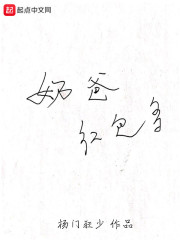 起点中文网
奶爸
红包多
杨门驻少 作品